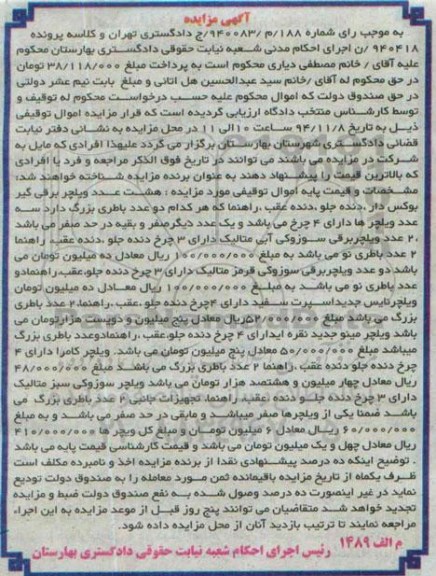 آگهی مزایده
به موجب رای شماره ۱۸۸/م /۹۴۰۰۸۳/ج دادگستری تهران و کلاسه پرونده
۹۴۰۴۱۸ /ن اجرای احکام مدنی شعبه نیابت حقوقی دادگستری بهارستان محکوم
علیه آقای / خانم مصطفی دیاری محکوم است به پرداخت مبلغ ۳۸/۱۱۸/۰۰۰ تومان
در حق محکوم له آقای /خانم سید عبدالحسین هل اتانی و مبلغ بابت نیم عشر دولتی
در حق صندوق دولت که اموال محکوم علیه حسب درخواست محکوم له توقیف و
توسط کارشناس منتخب دادگاه ارزیابی گردیده است که قرار مزایده اموال توقیفی
ذیل به تاریخ ۹۴/۱۱/۸ ساعت ۱۰الی ۱۱ در محل مزایده به نشانی دفتر نیابت
قضائی دادگستری شهرستان بهارستان برگزار می گردد علیهذا افرادی که مایل به
شرکت در مزایده می باشند می توانند در تاریخ فوق الذکر مراجعه و فرد یا افرادی
که بالاترین قیمت را پیشنهاد دهند به عنوان برنده مزایده شناخته خواهند شد؛
مشخصات و قیمت پایه اموال توقیفی مورد مزایده : هشت عدد ویلچر برقی گیر
بوکس دار ،دنده جلو ،دنده عقب ،راهنما که هر کدام دو عدد باطری بزرگ دارد سه
عدد ویلچر ها دارای ۴ چرخ می باشد و یک عدد دیگرصفر و بقیه در حد صفر می باشد
،۲ عدد ویلچربرقی سوزوکی آبی متالیک دارای ۳ چرخ دنده جلو ،دنده عقب ،راهنما
۲ عدد باطری نو می باشد به مبلغ ۱۰۰/۰۰۰/۰۰۰ ریال معادل ده میلیون تومان می
باشد دو عدد ویلچربرقی سوزوکی قرمز متالیک دارای ۳ چرخ دنده جلو،عقب،راهنمادو
عدد باطری نو می باشد به مبلغ ۱۰۰/۰۰۰/۰۰۰ ریال معادل ده میلیون تومان
ویلچرتایس جدیداسپرت سفید دارای ۴چرخ دنده جلو،عقب ،راهنما،۲ عدد باطری
بزرگ می باشد مبلغ ۵۲/۰۰۰/۰۰۰ریال معادل پنج میلیون و دویست هزارتومان می
باشد ویلچر مینو جدید نقره ایدارای ۴ چرخ دنده جلو،عقب ،راهنمادوعدد باطری بزرگ
میباشد مبلغ ۵۰/۰۰۰/۰۰۰ معادل پنج میلیون تومان می باشد. ویلچر کامرا دارای ۴
چرخ دنده جلو دنده عقب ،راهنما ۲ عدد باطری بزرگ می باشد مبلغ ۴۸/۰۰۰/۰۰۰
ریال معادل چهار میلیون و هشتصد هزار تومان می باشد ویلچر سوزوکی سبز متالیک
دارای ۳ چرخ دنده جلو دنده عقب، راهنما، تجهیزات جانبی ۲ عدد باطری بزرگ می
باشد ضمنا یکی از ویلچرها صفر میباشد و مابقی در حد صفر می باشد و به مبلغ
۶۰/۰۰۰/۰۰۰ ریال معادل ۶ میلیون تومان و مبلغ کل ویچر ها ۴۱۰/۰۰۰/۰۰۰
ریال معادل چهل و یک میلیون تومان می باشد و قیمت کارشناسی قیمت پایه می باشد
. توضیح اینکه ده درصد پیشنهادی نقدا از برنده مزایده اخذ و نامبرده مکلف است
ظرف یکماه از تاریخ مزایده باقیمانده ثمن مورد معامله را به صندوق دولت تودیع
نماید در غیر اینصورت ده درصد وصول شده به نفع صندوق دولت ضبط و مزایده
تجدید خواهد شد متقاضیان می توانند پنج روز قبل از موعد مزایده به این اجراء
مراجعه نمایند تا ترتیب بازدید آنان از محل مزایده داده شود.
م الف ۱۴۸۹ رئیس اجرای احکام شعبه نیابت حقوقی دادگستری بهارستان